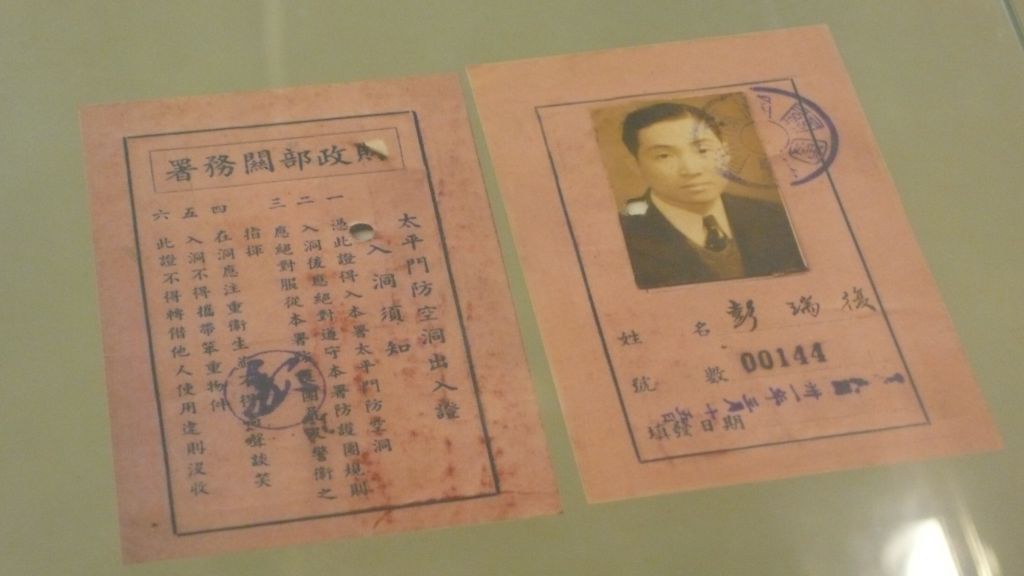 財政部關務署
太平門防空洞出入證
入洞須知
一 憑此證得入本署太平門防空洞
二 入洞後應絕對遵守本署防護團規則
三 應絕對服從本署防護團員及警衛之
指揮
四 在洞應注重衛生
談笑
五 入洞不得攜帶笨重物件
六 此證不得轉借他人使用違則沒收
姓名 彭瑞
號數 00144
年三月十
填發日期